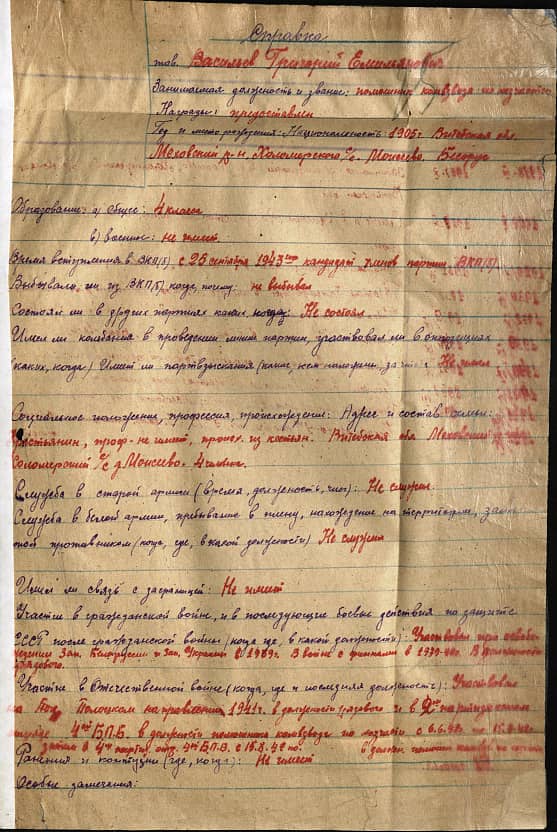 Справка
тов. Васильев Григорий Емельянович
Занимаемая должность и звание: помошник комвзвода по хозчасти
Награды: предоставлен
Год и место рождения: Национальность 1905г. Витебская обл.
Меховский р-н, Холомерского с/с. Моисеево. Белорус
Образование: а) Общее: 4 класса
в) военное: не имеет.
Время вступления в ВКП(б) с 25 сентября 1943 года кандидат членов партии ВКП(б)
Выбывал ли из ВКП(б) когда, почему: не выбывал
Состоял ли в других партиях каких, когда: Не состоял
Имел ли колебания в проведении линии партии, участвовал ли в опозициях
(каких, когда) Имеет ли партвзыскания (какие, кем наложены, за что) Не имел
Социальное положение, профессия, происхождение: Адрес и состав семьи:
Крестьянин, проф- не имеет, происх. из крестьян. Витебская обл Меховский
Холомерский с/с д. Моисеево. 4 человека.
Служба в старой армии (время, должность, чин): Не служил.
Служба в белой армии, пребывание в плену, нахождение на территории,
противником (когда, где, в какой должности) Не служил
Имел ли связь с заграницей: Не имеет
Участие в гражданской войне, и в последующие боевые действия по защите
СССР после гражданской войны (когда где, в какой должности): Участвовал при освобо-
ждении Зап. Белоруссии и Зап. Украины в 1939г. В войне с финнами в 1939-40г. В должности
рядового.
Участие в Отечественной войне (когда, где и последняя должность): Участвовал
на Полоцком направлении 1941г. в должности рядового и в 2ом партизанском
отряде 4ой Б.П.Б. в должности помошника комвзвода по хозчасти с 6.6.42г по 15.8.42г
затем в 4ом партиз. отр. 4ой Б.П.Б. с 15.8.42 по. в должн. помошн комвзв. по хозчасти
Ранения и контузии (где, когда): Не имеет
Особые замечания: